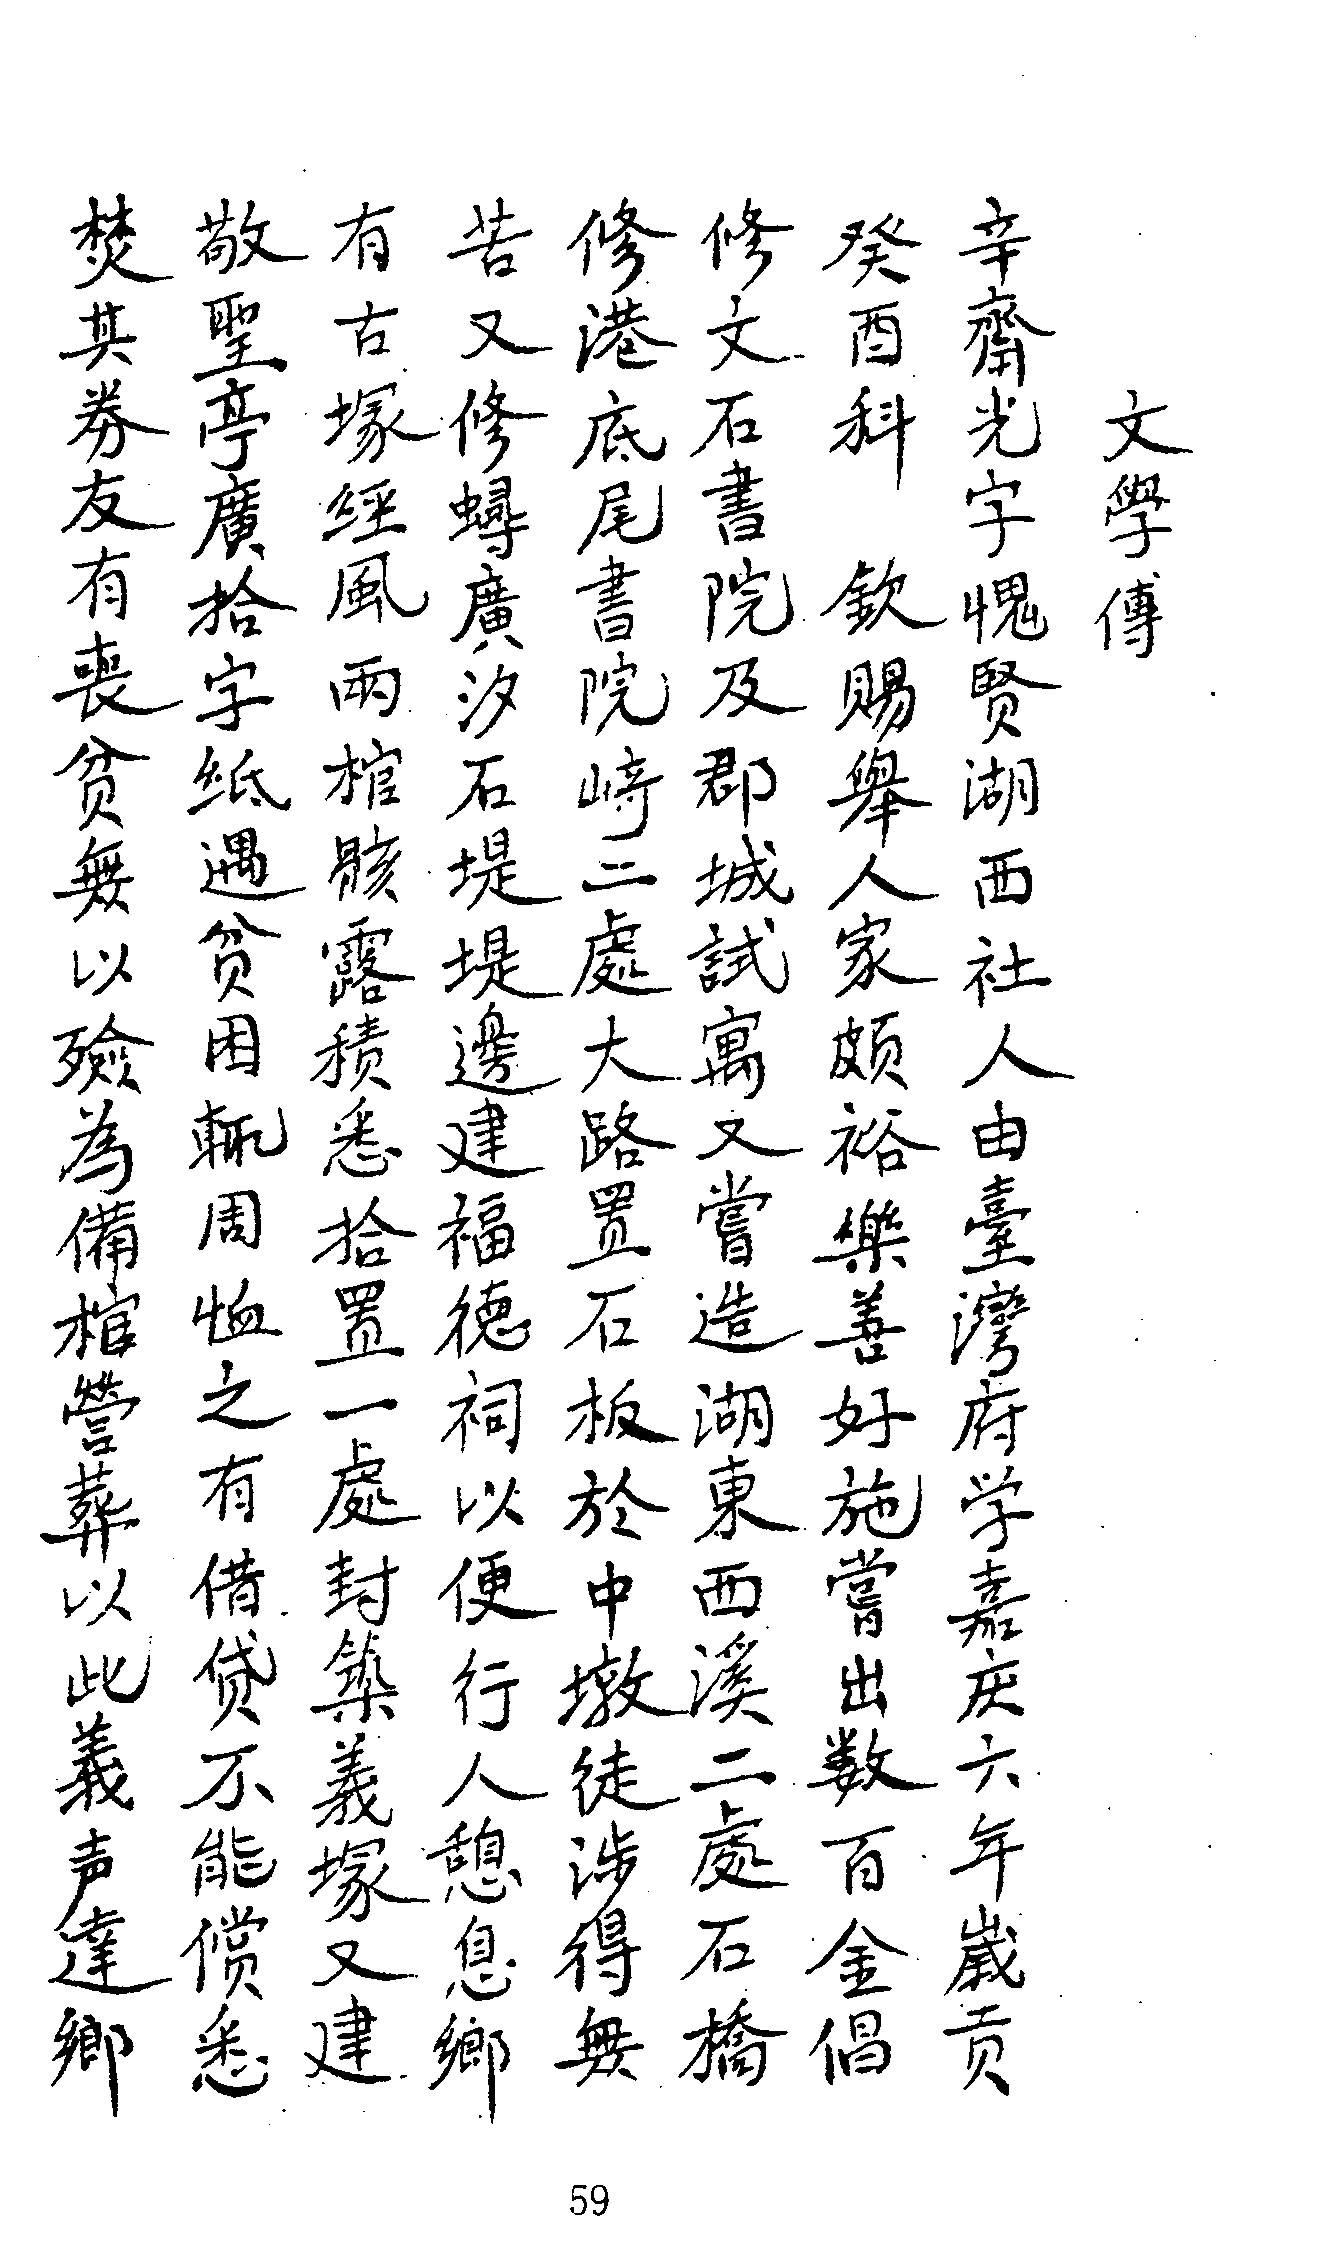 文學傳
辛齋光字愧賢湖西社人由臺灣府学嘉庆六年歲贡
癸酉科　欽賜舉人家頗裕樂善好施嘗出数百金倡
修文石書院及郡城試寓又嘗造湖東西溪二處石橋
修港底尾書院崎二處大路置石板於中墩徒涉得無
苦又修蟳廣汐石堤堤邊建福德祠以便行人憩息鄉
有古塚經風雨棺骸露積悉拾置一處封築義塚又建
敬聖亭廣拾字紙遇贫困輒周恤之有借贷不能偿悉
焚其券友有喪贫無以殮為備棺營葬以此義声達鄉
59